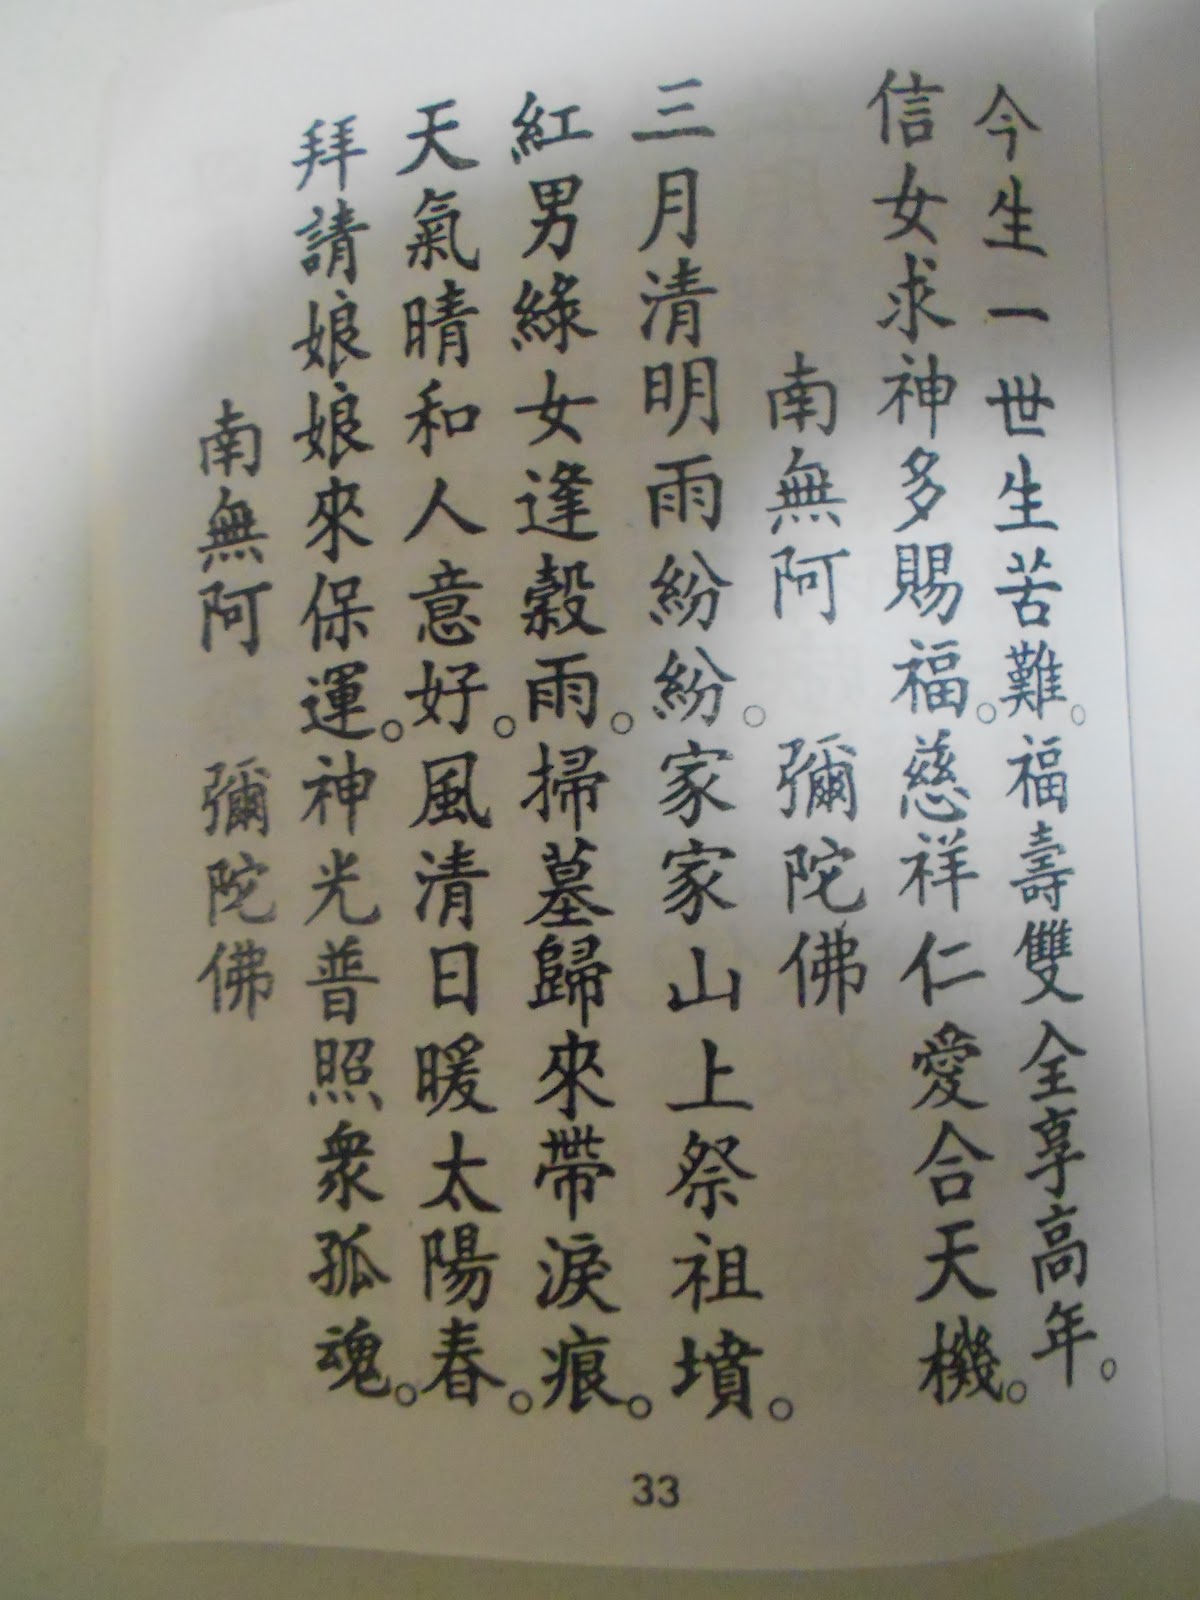 今生一世生苦難。福壽雙全享高年。
信女求神多賜福。慈祥仁愛合天機。
南無阿　彌陀佛
三月清明雨紛紛。家家山上祭祖墳。
紅男綠女逢穀雨。掃墓歸來帶淚痕。
天氣晴和人意好。風清日暖太陽春。
拜請娘娘來保運。神光普照衆孤魂。
南無阿　彌陀佛
33